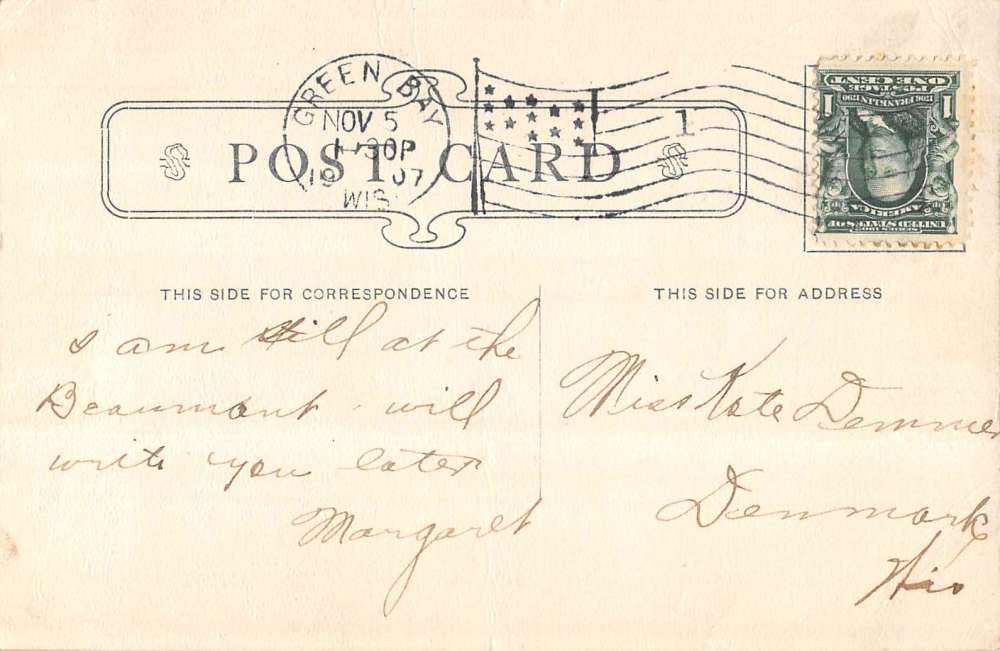 GREEN BAY
NOV 5
1-30P
19 07
WIS.
POST CARD
1
ONE CENT
POSTAGE
1706 FRANKLIN 1790
1 1
AMERICA
UNITED STATES OF
SERIES 1902
THIS SIDE FOR CORRESPONDENCE
THIS SIDE FOR ADDRESS
I am still at the
Beaumont - will
write you later
Margaret
Miss Kate Demmer
Denmark
Wis